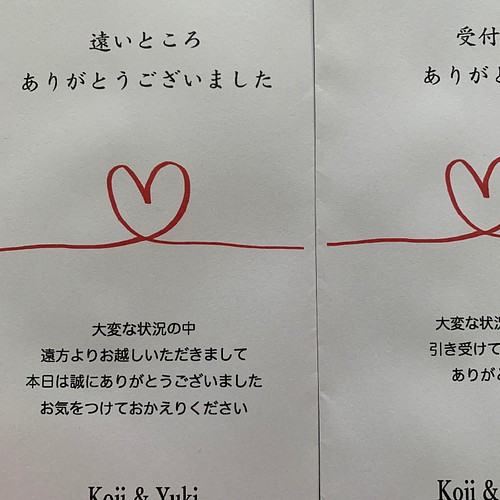 遠いところ
ありがとうございました
大変な状況の中
遠方よりお越しいただきまして
本日は誠にありがとうございました
お気をつけておかえりください
Koji & Yuki
受付
ありがと
大変な状況
引き受けて
ありがと
Koji &